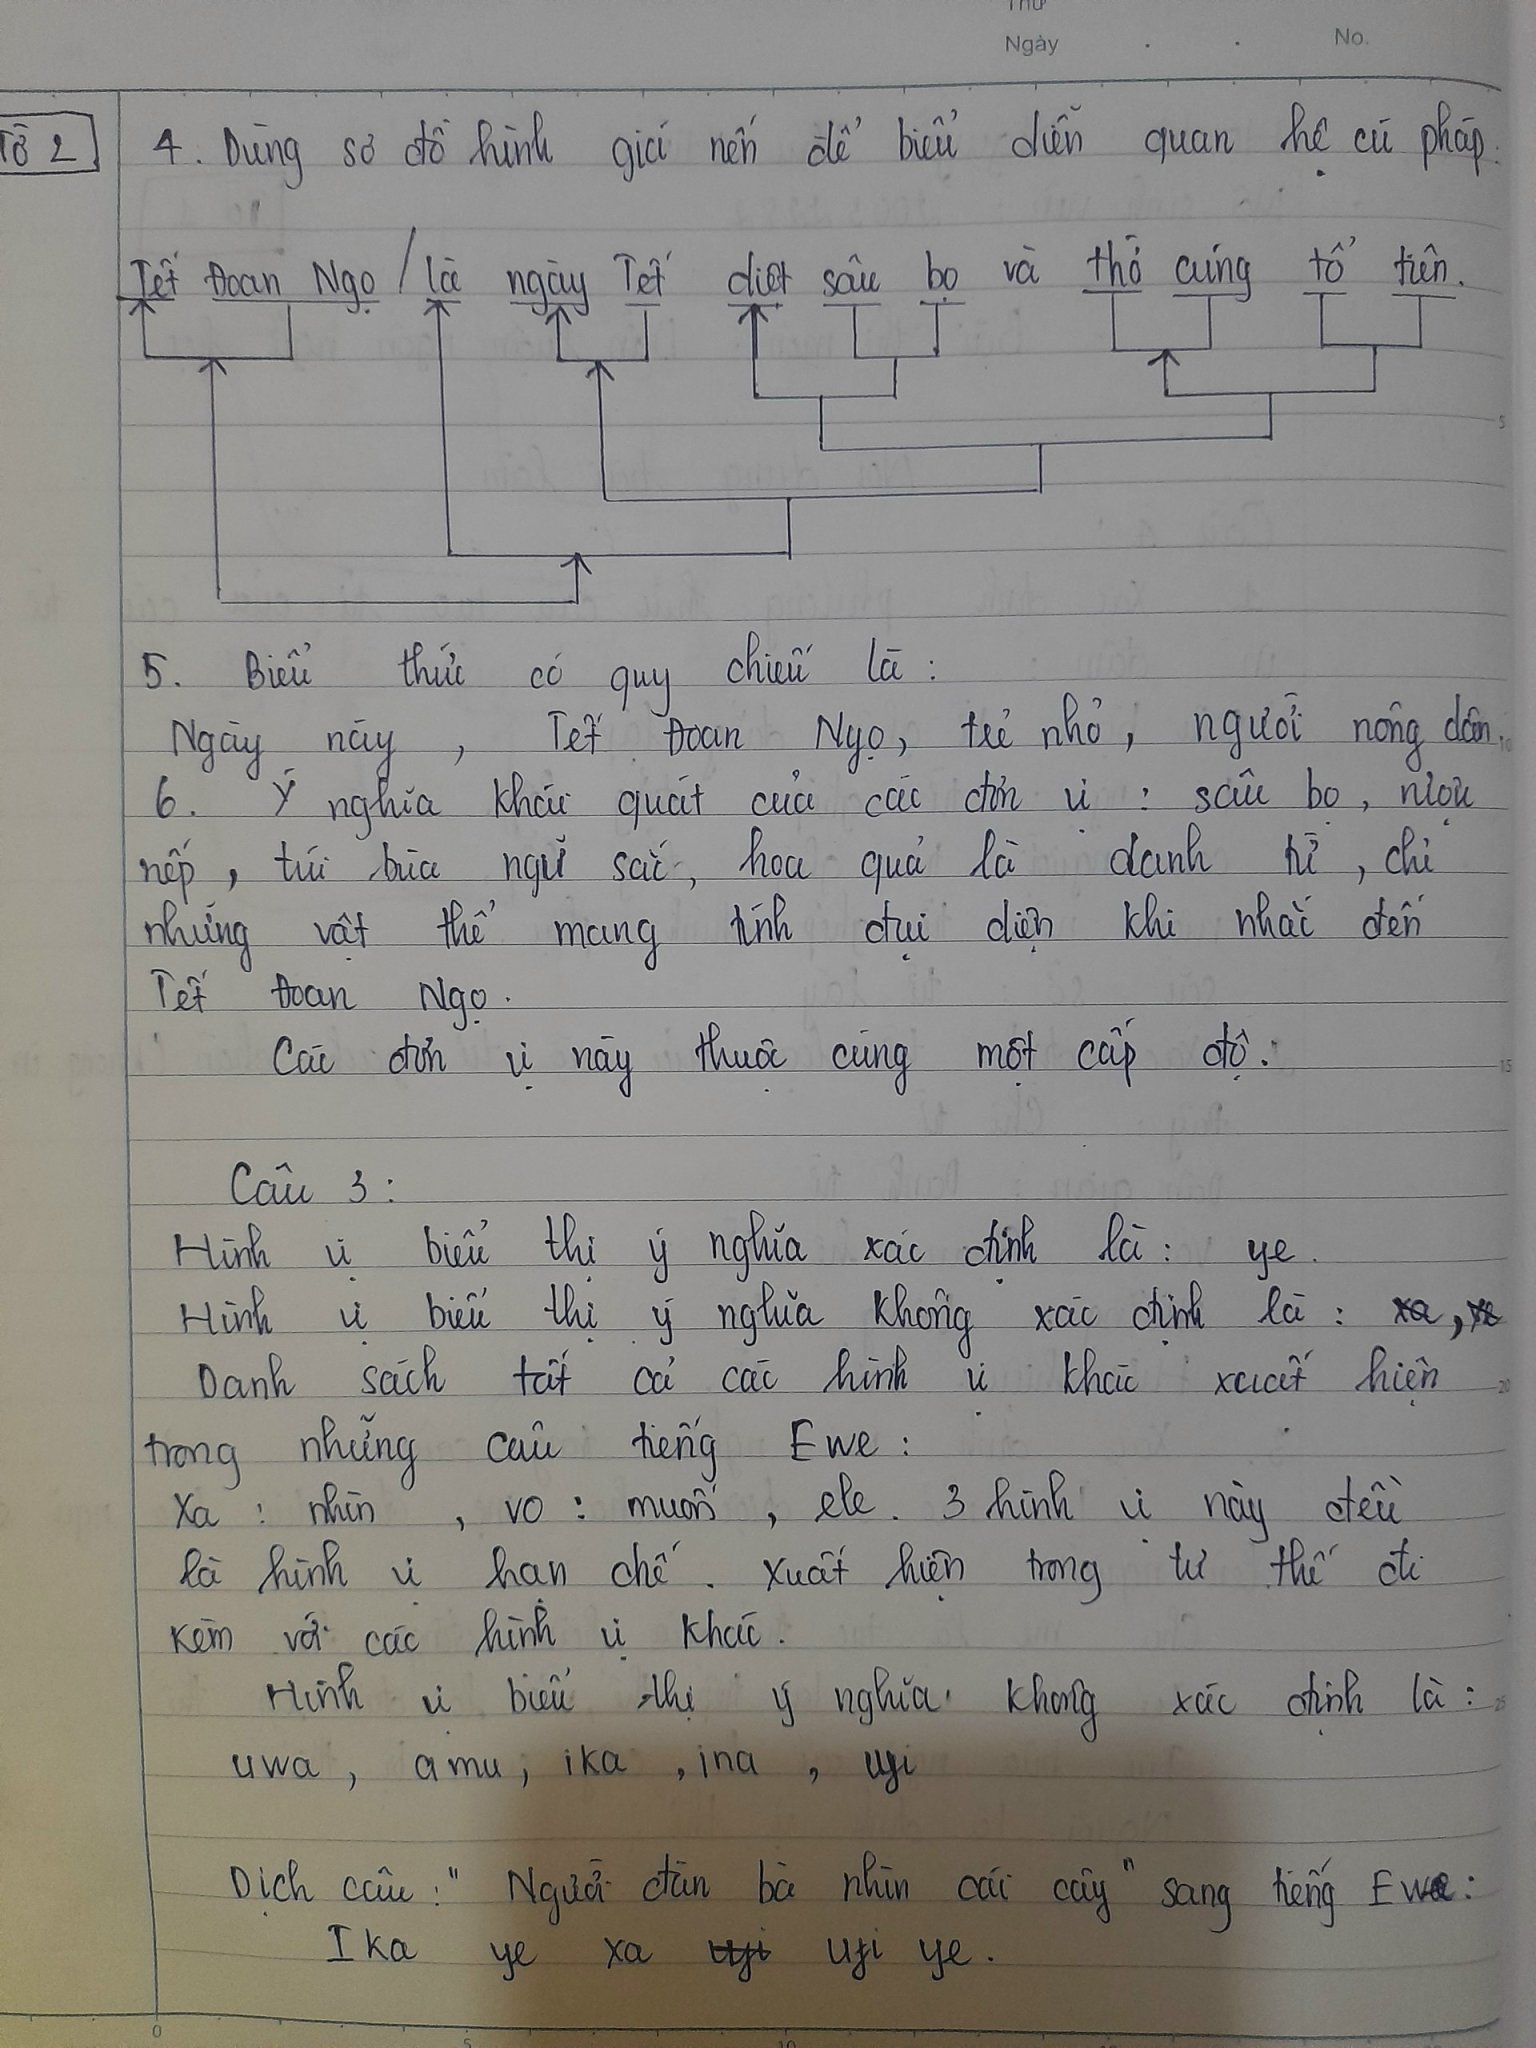 Thứ
Ngày . . No.
Tờ 2
4. Dùng sơ đồ hình giá nến để biểu diễn quan hệ cú pháp.
Tết Đoan Ngọ / là ngày Tết diệt sâu bọ và thờ cúng tổ tiên.
5. Biểu thức có quy chiếu là:
Ngày này, Tết Đoan Ngọ, trẻ nhỏ, người nông dân.
6. Ý nghĩa khái quát của các đơn vị: sâu bọ, rượu
nếp, túi bùa ngũ sắc, hoa quả là danh từ, chỉ
những vật thể mang tính đại diện khi nhắc đến
Tết Đoan Ngọ.
Các đơn vị này thuộc cùng một cấp độ.
Câu 3:
Hình vị biểu thị ý nghĩa xác định là: ye.
Hình vị biểu thị ý nghĩa không xác định là: xa,
Danh sách tất cả các hình vị khác xuất hiện
trong những câu tiếng Ewe:
Xa: nhìn, vo: muốn, ele. 3 hình vị này đều
là hình vị hạn chế. Xuất hiện trong tư thế đi
kèm với các hình vị khác.
Hình vị biểu thị ý nghĩa không xác định là:
uwa, amu, ika, ina, uyi
Dịch câu: "Người đàn bà nhìn cái cây" sang tiếng Ewe:
Ika ye xa uyi uyi ye.
0 5 10
5
10
15
20
25